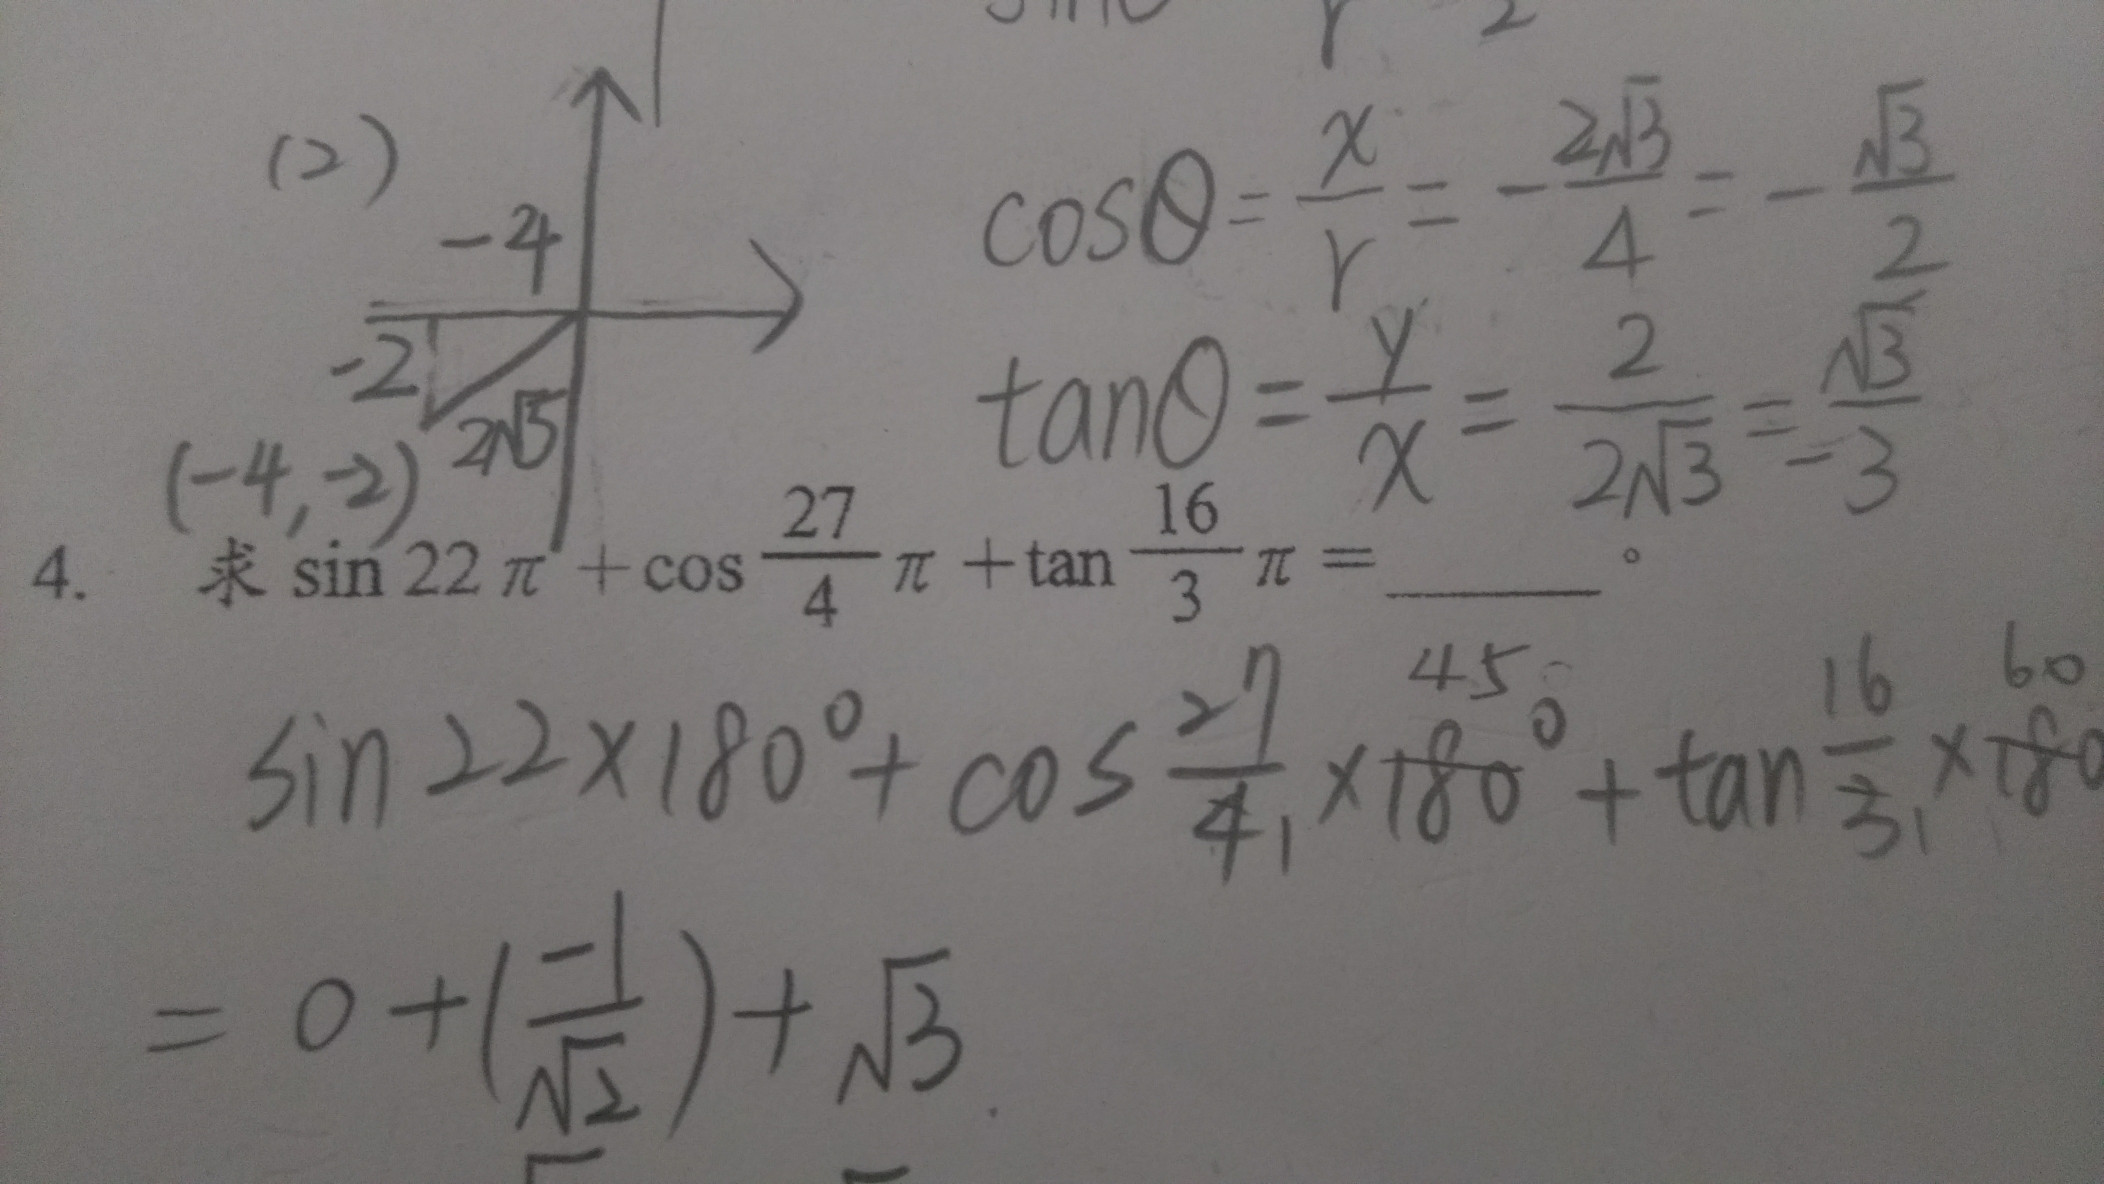 (2)
-4
-2
2√5
(-4,-2)
cosθ = x/r = -2√3/4 = -√3/2
tanθ = y/x = 2/2√3 = -√3/3
4. 求 sin 22π + cos 27/4 π + tan 16/3 π = ______ 。
45 60
sin 22×180° + cos 27/4 1 ×180° + tan 16/3 1 ×180
= 0 + (-1/√2) + √3